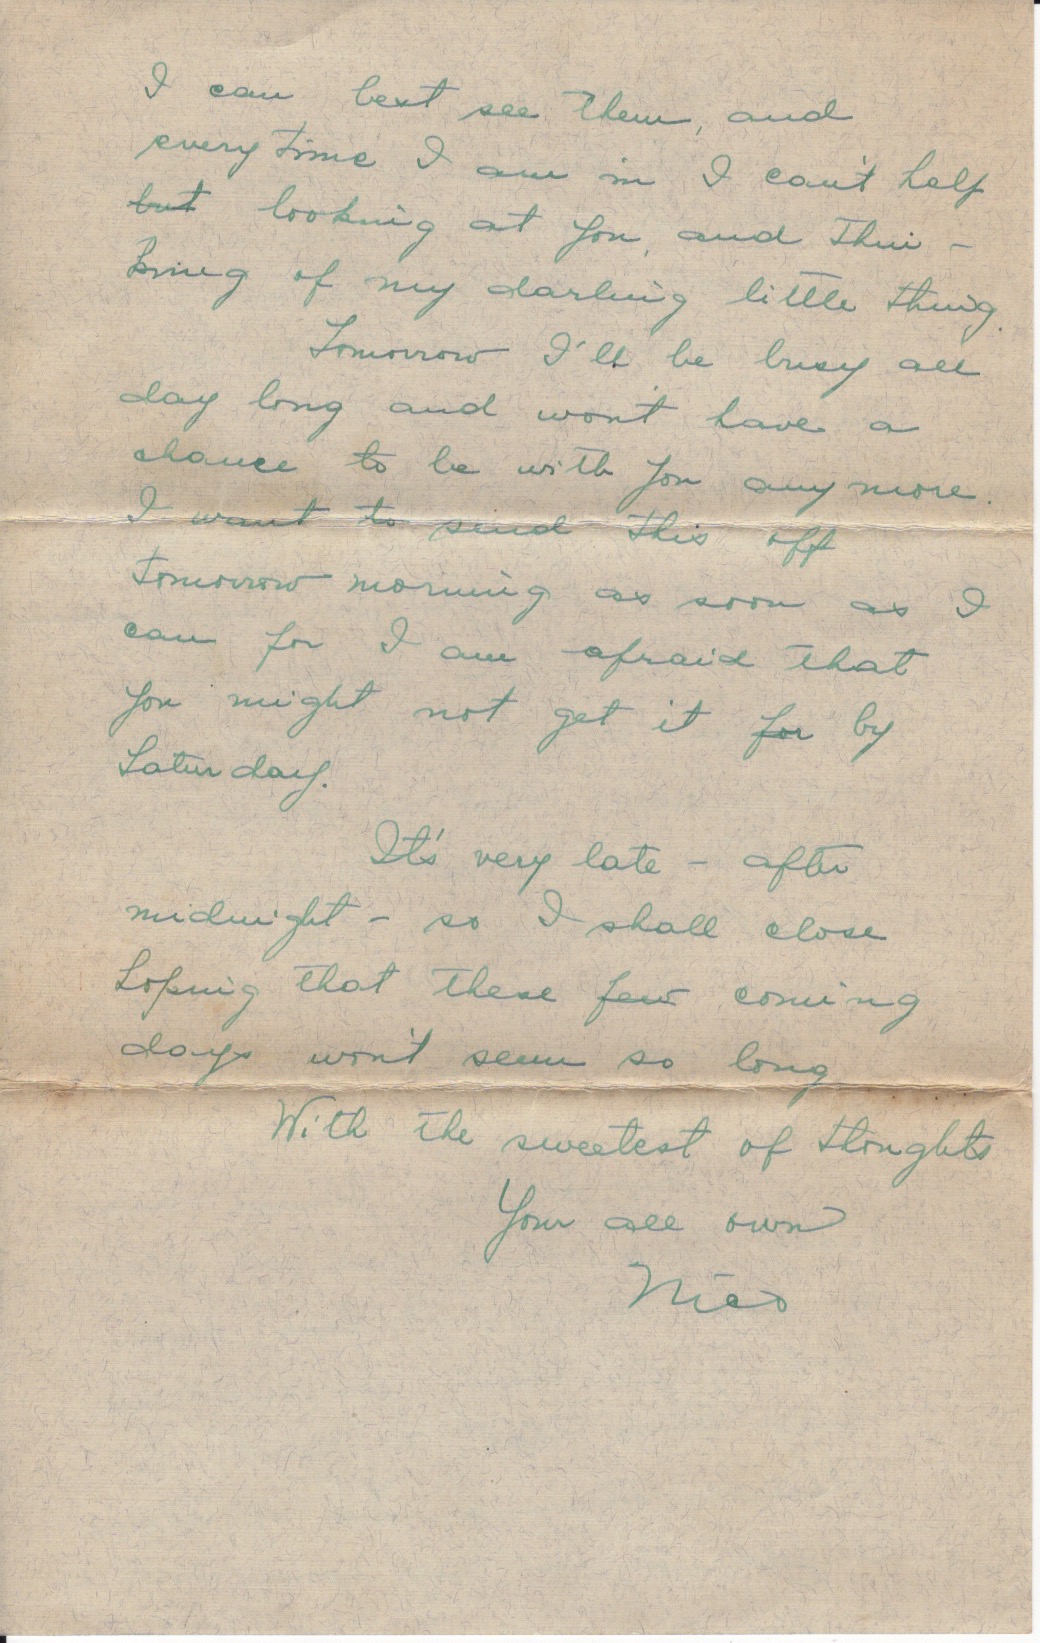 I can best see them, and
everytime I am in I can't help
but looking at you, and thin-
king of my darling little thing.
Tomorrow I'll be busy all
day long and won't have a
chance to be with you anymore.
I want to send this off
tomorrow morning as soon as I
can for I am afraid that
you might not get it for by
Saturday.
It's very late - after
midnight - so I shall close
hoping that these few coming
days won't seem so long
With the sweetest of thoughts
Your all own